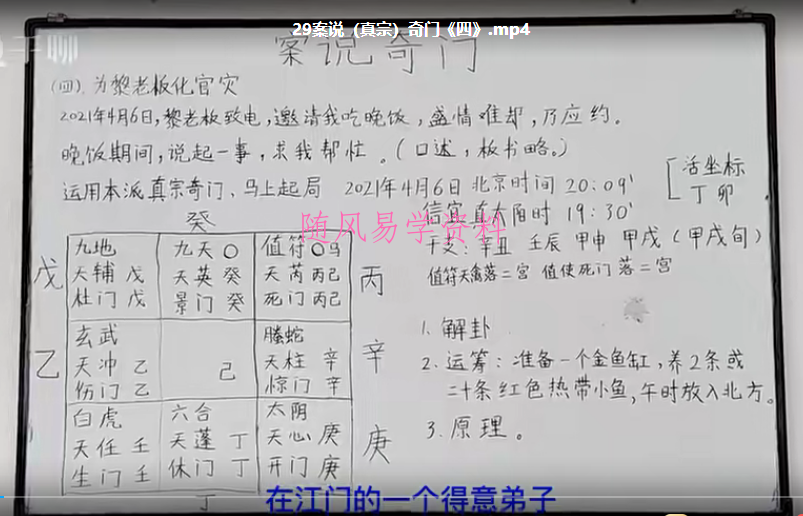 29案说（真宗）奇门《四》.mp4
千聊
案说奇门
(四).为黎老板化官灾
2021年4月6日,黎老板致电,邀请我吃晚饭,盛情难却,乃应约。
晚饭期间,说起一事,求我帮忙。(口述,板书略。)
运用本派真宗奇门、马上起局 2021年4月6日 北京时间 20:09'
信宜真太阳时 19:30'
活坐标
丁卯
随风易学资料
干支:辛丑 壬辰 甲申 甲戌(甲戌旬)
值符天禽落二宫 值使死门落二宫
癸
九地
天辅 戊
杜门 戊
九天〇
天英 癸
景门 癸
值符〇马
天芮 丙己
死门 丙己
戊
丙
玄武
天冲 乙
伤门 乙
己
螣蛇
天柱 辛
惊门 辛
乙
辛
白虎
天任 壬
生门 壬
六合
天蓬 丁
休门 丁
太阴
天心 庚
开门 庚
庚
丁
1.解卦
2.运筹:准备一个金鱼缸,养2条或
二十条红色热带小鱼,午时放入北方。
3.原理。
在江门的一个得意弟子